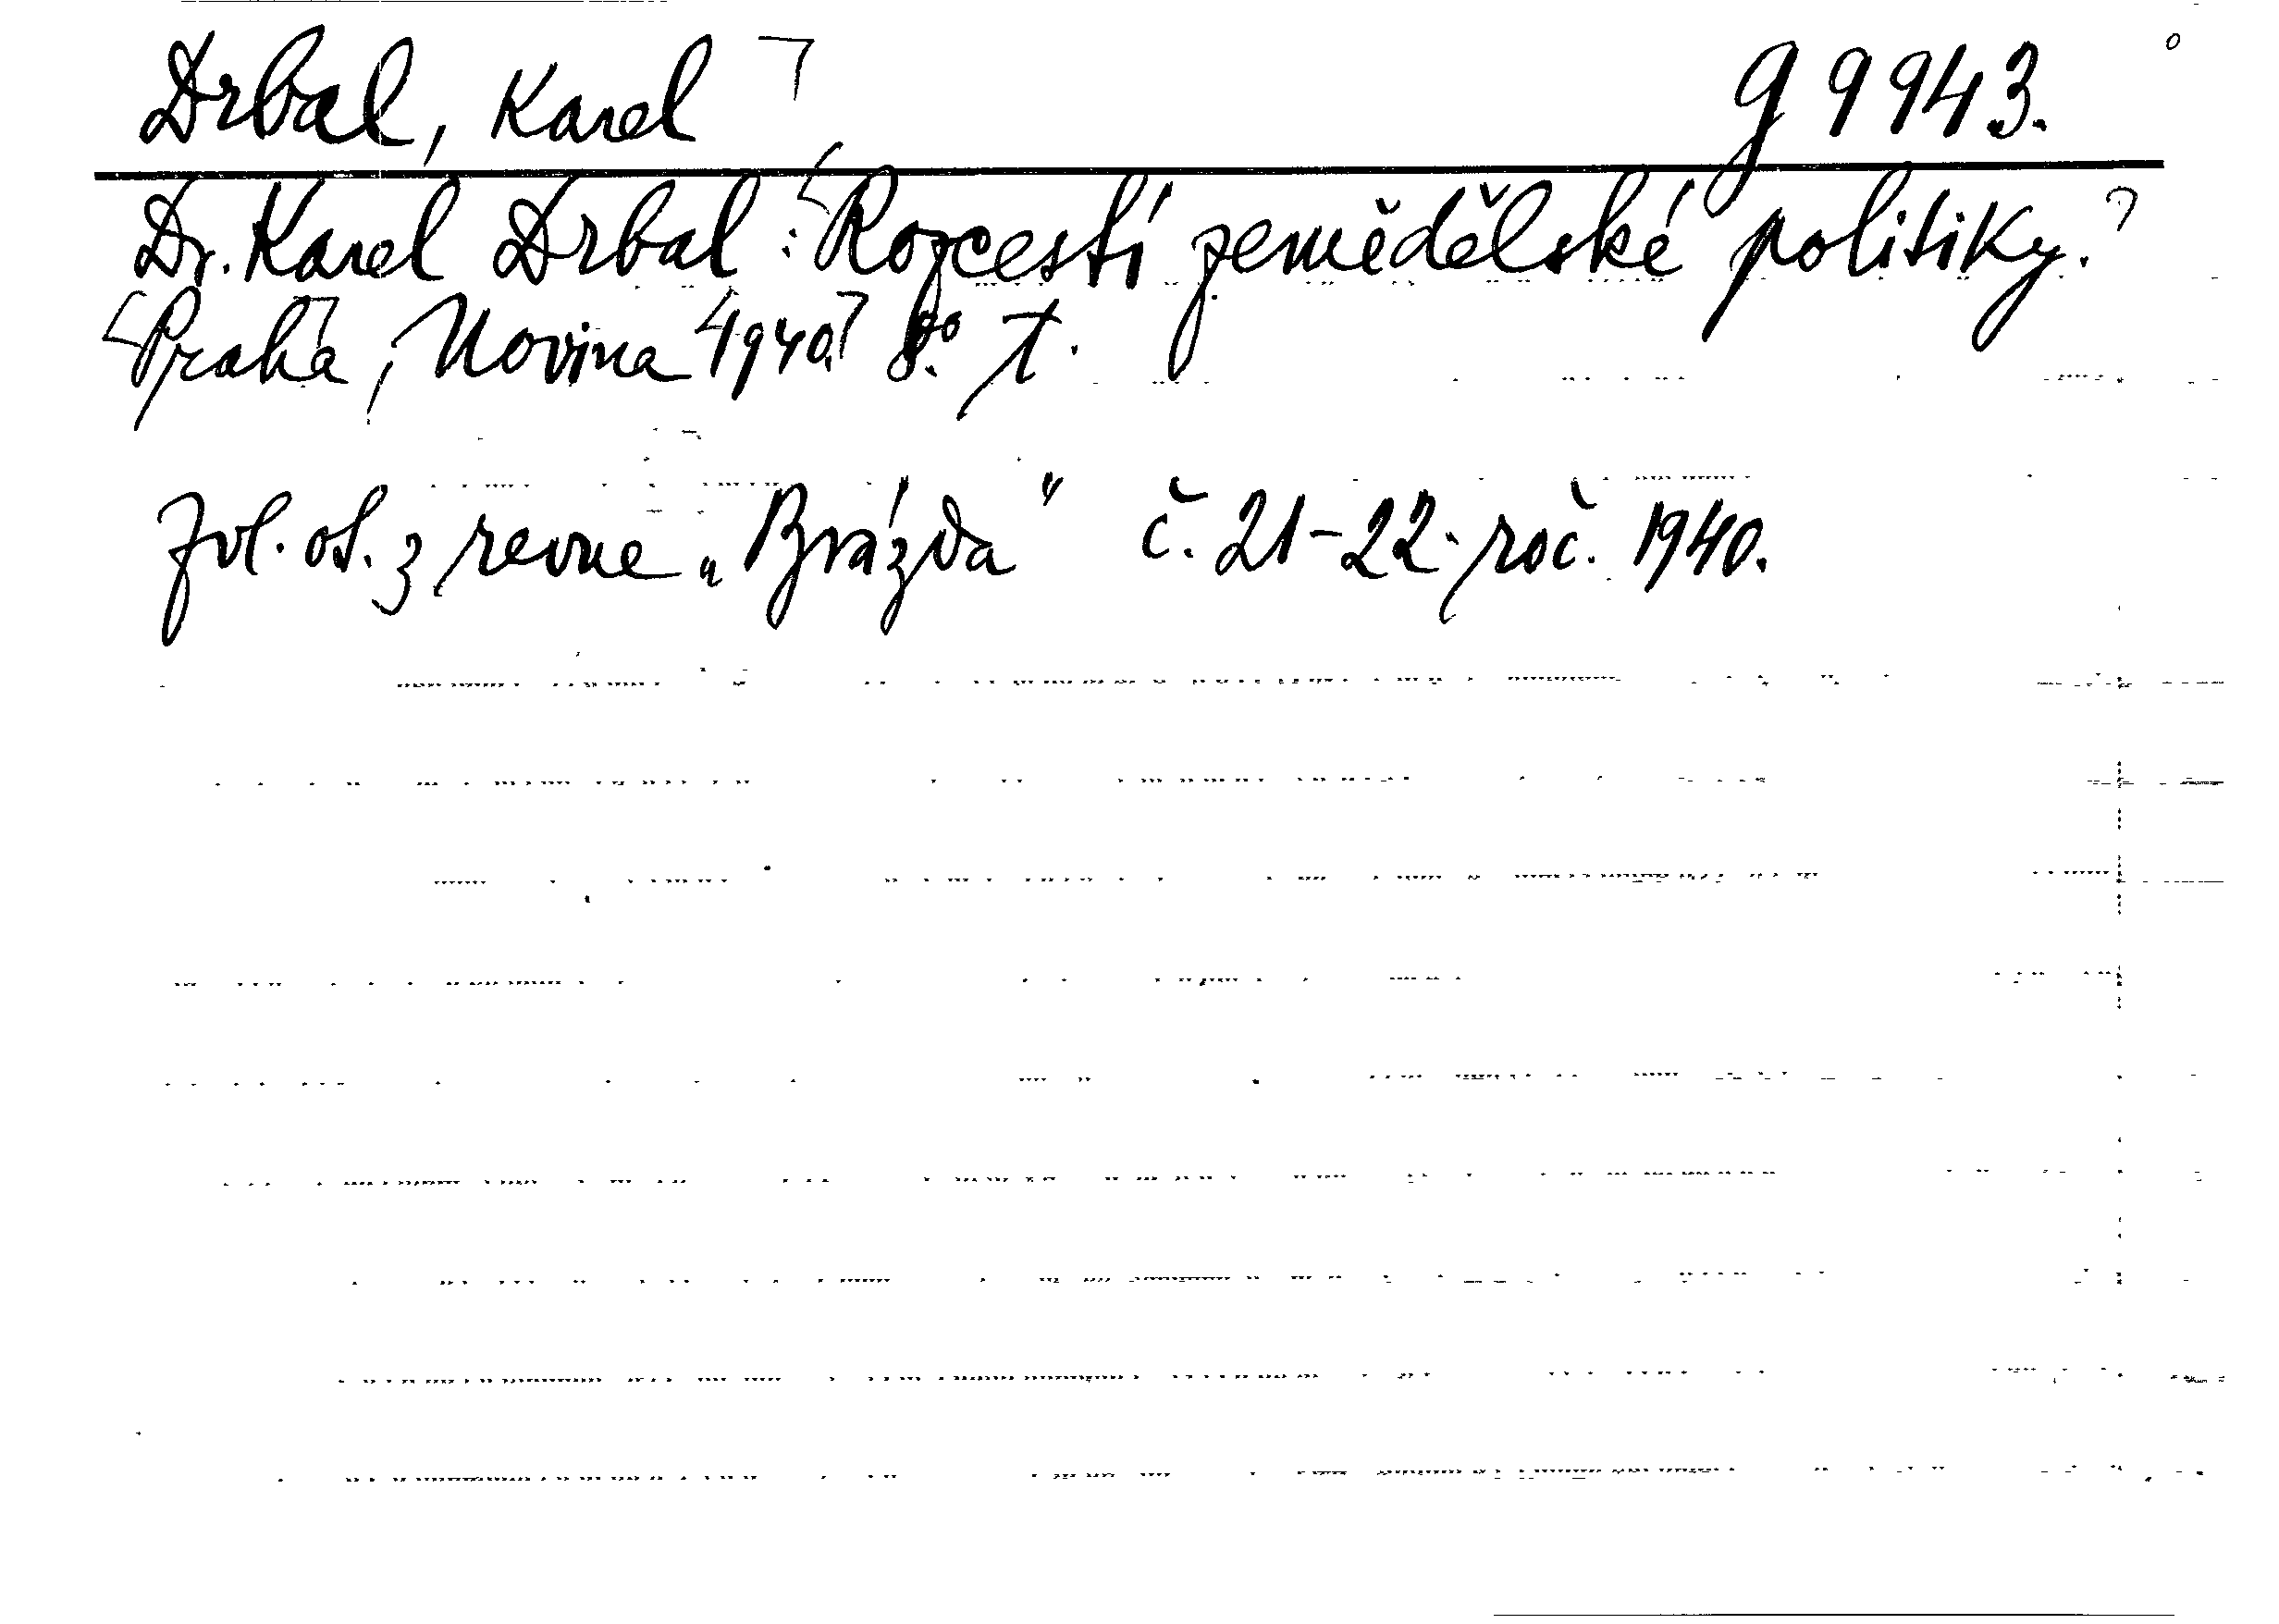 Drbal, Karel g 9943.
Dr. Karel Drbal: Rozcestí zemědělské politiky.
Praha, Novina 1940. 8° T.
Zvl. ot. z revue „Brázda" č. 21-22. roč. 1940.